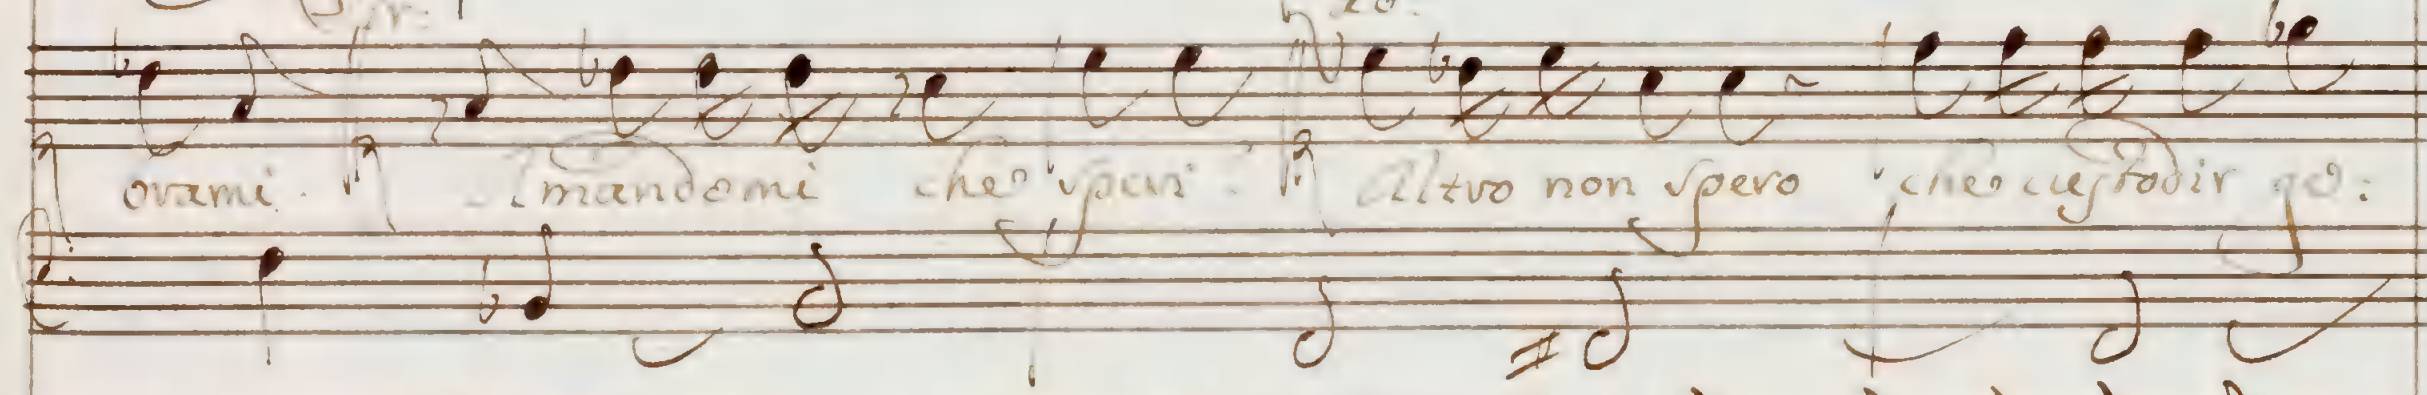 orami. Amandomi che speri? Altro non spero che custodir ge: